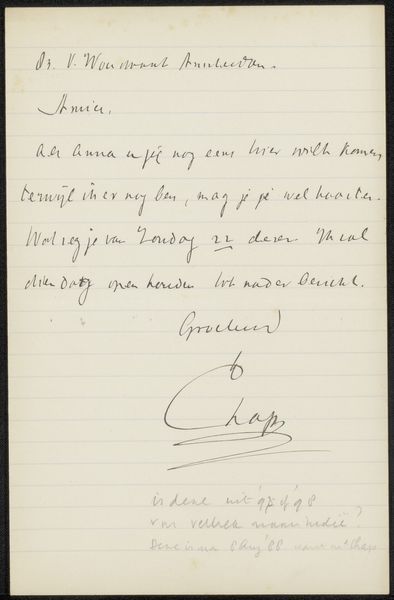 Dr. V. Woudward Amsterdam.
Amice,
Als Anna en jij nog eens hier wilt komen
terwijl ik er nog ben, mag je je wel haasten.
Wat zeg je van Zondag 22 dezer. Ik zal
dien dag open houden tot nader bericht.
Groetend
Chaps
is deze uit '97 of '98
voor vertrek naar Indië?
Deze is van 8 Aug '88